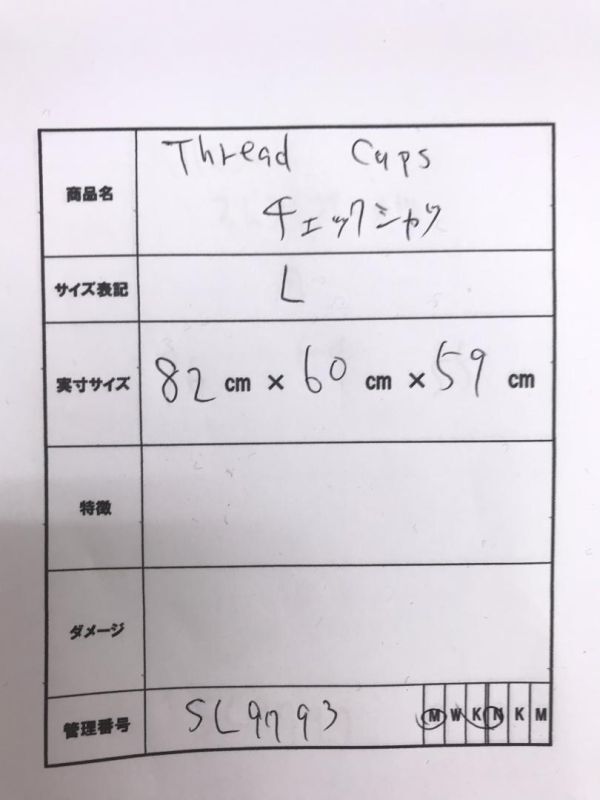 商品名 Thread Caps
チェックシャツ
サイズ表記 L
実寸サイズ 82 cm × 60 cm × 59 cm
特徴
ダメージ
管理番号 SL9793 M W K N K M